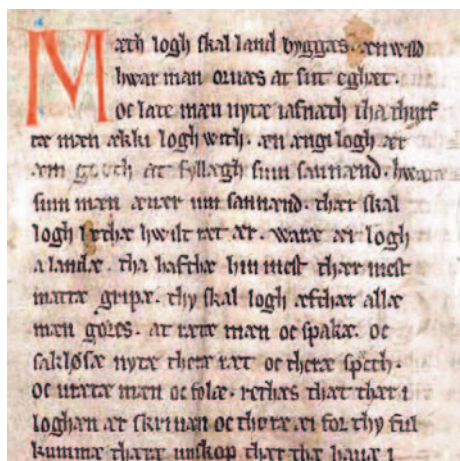 Mæth logh skal land byggæs. æn wild
hwar man oruæs at sit eghæt.
oc late mæn nytæ iafnæth tha thurf
tæ mæn ækki logh with. æn ængi logh ær
æm goth at fyllægh sum sannænd. hwaræ
sum mæn æuær um sannænd. thær skal
logh lethæ hwilt ræt ær. waræ æi logh
a landæ. tha hafthæ hin mest thær mest
mattæ gripæ. thy skal logh æfthær allæ
mæn gøres. at rætæ mæn oc spakæ. oc
sakløsæ nytæ theræ ræt oc theræ spæth.
oc urætæ mæn oc folæ. rethæs that thær i
loghæn ær skriuæn oc thoræ æi for thy ful
kummæ theræ unskop thær thæ hauæ i